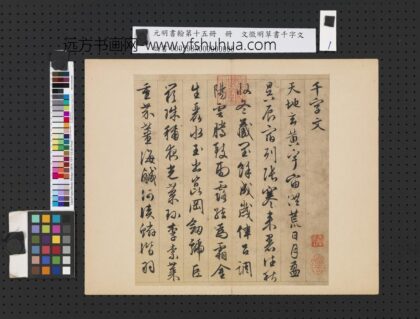 元明書翰第十五冊 冊 文徵明草書千字文
远方书画网 www.yfshuhua.com
千字文
天地玄黃宇宙洪荒日月盈
昃辰宿列張寒来暑往秋
收冬藏閏餘成歲律呂調
陽雲騰致雨露結為霜金
生麗水玉出崑岡劍號巨
闕珠稱夜光菓珍李柰菜
重芥薑海鹹河淡鱗潛羽